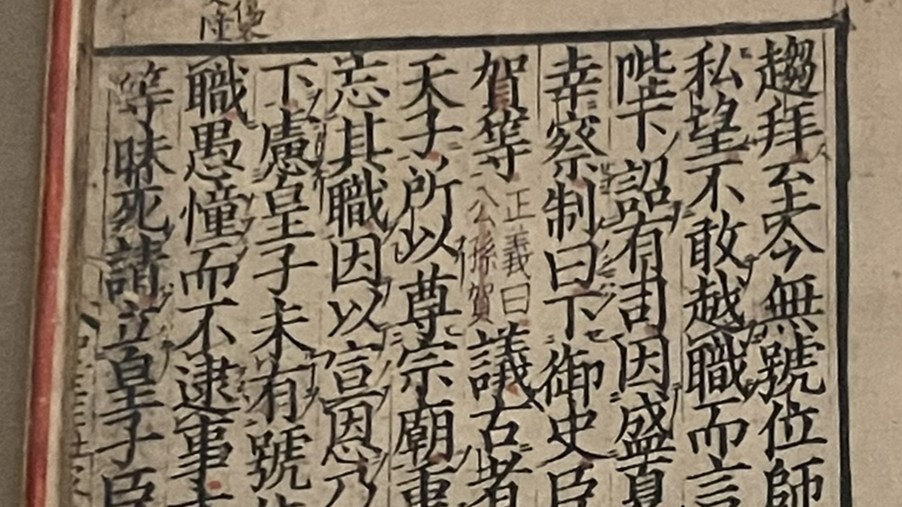 趨拜至今無號位師
私望不敢越職而言
陛下詔有司因盛夏
幸察制曰下御史臣
賀等
正義曰
公孫賀
議古者
天子所以尊宗廟重
忘其職因以宣恩乃
下慮皇子未有號位
職愚憧而不逮事
等昧死請立皇子臣